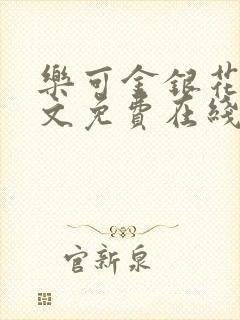 樂可金銀花
文免費在綫
官新泉